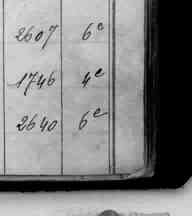 2607 6e
1746 4e
2640 6e